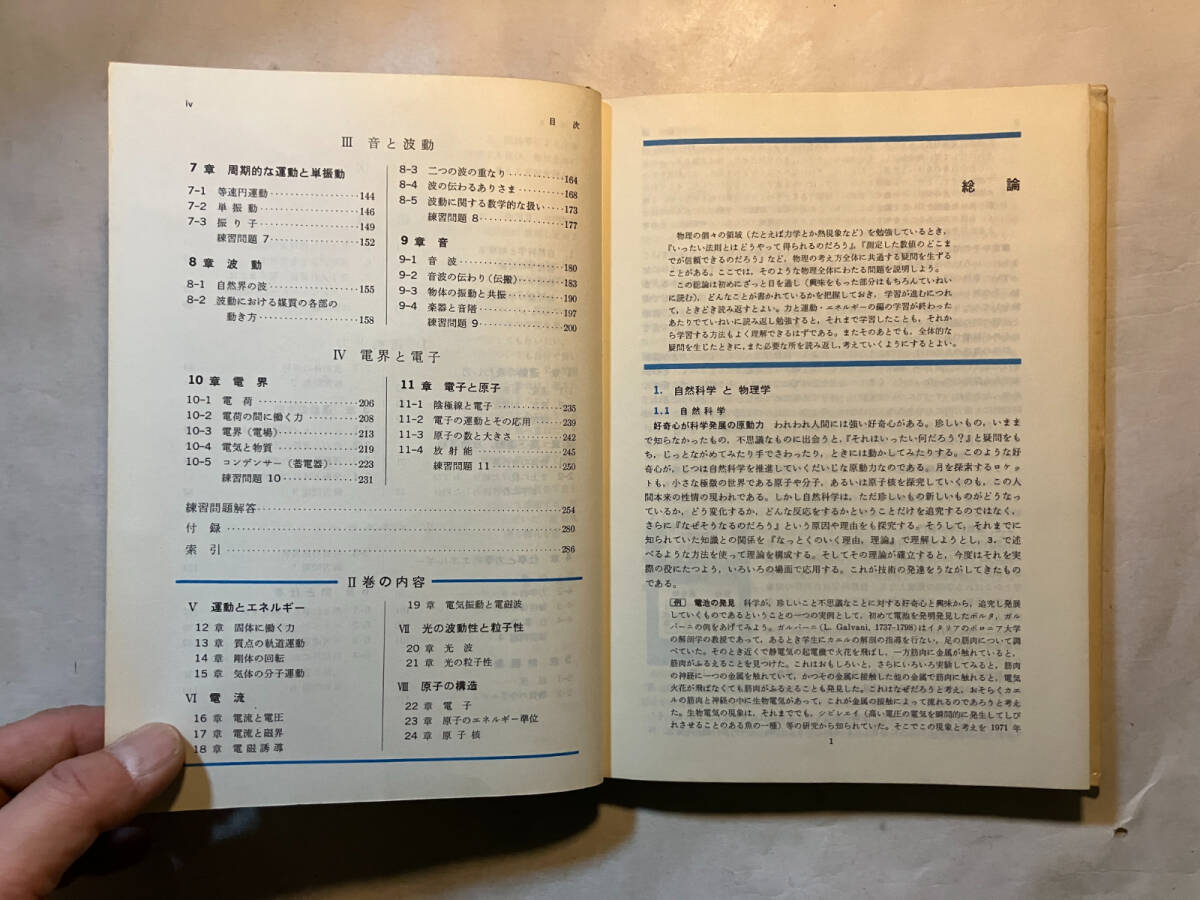 iv
目 次
III 音と波動
7 章 周期的な運動と単振動
7-1 等速円運動……………144
7-2 単 振 動……………146
7-3 振 り 子……………149
練習問題 7……………152
8 章 波 動
8-1 自然界の波……………155
8-2 波動における媒質の各部の
動き方……………158
8-3 二つの波の重なり…………164
8-4 波の伝わるありさま…………168
8-5 波動に関する数学的な扱い……173
練習問題 8……………177
9 章 音
9-1 音 波……………180
9-2 音波の伝わり(伝搬)…………183
9-3 物体の振動と共振……………190
9-4 楽器と音階……………197
練習問題 9……………200
IV 電界と電子
10 章 電 界
10-1 電 荷……………206
10-2 電荷の間に働く力……………208
10-3 電界(電場)……………213
10-4 電気と物質……………219
10-5 コンデンサー(蓄電器)………223
練習問題 10……………231
11 章 電子と原子
11-1 陰極線と電子……………235
11-2 電子の運動とその応用………239
11-3 原子の数と大きさ……………242
11-4 放 射 能……………245
練習問題 11……………250
練習問題解答……………254
付 録……………280
索 引……………286
II 巻の内容
V 運動とエネルギー
12 章 固体に働く力
13 章 質点の軌道運動
14 章 剛体の回転
15 章 気体の分子運動
VI 電 流
16 章 電流と電圧
17 章 電流と磁界
18 章 電 磁 誘 導
19 章 電気振動と電磁波
VII 光の波動性と粒子性
20 章 光 波
21 章 光の粒子性
VIII 原子の構造
22 章 電 子
23 章 原子のエネルギー準位
24 章 原 子 核
総 論
物理の個々の領域(たとえば力学とか熱現象など)を勉強しているとき,
『いったい法則とはどうやって得られるのだろう』,『測定した数値のどこま
でが信頼できるのだろう』など, 物理の考え方全体に共通する疑問を生ずる
ことがある。ここでは, そのような物理全体にわたる問題を説明しよう。
この総論は初めにざっと目を通し(興味をもった部分はもちろんていねい
に読む), どんなことが書かれているかを把握しておき, 学習が進むにつれ
て, ときどき読み返すとよい。力と運動・エネルギーの編の学習が終わった
あたりでていねいに読み返し勉強すると, それまで学習したことも, それか
ら学習する方法もよく理解できるはずである。またそのあとでも, 全体的な
疑問を生じたときに,また必要な所を読み返し,考えていくようにするとよい。
1. 自然科学 と 物理学
1.1 自然科学
好奇心が科学発展の原動力 われわれ人間には強い好奇心がある。珍しいもの, いまま
で知らなかったもの, 不思議なものに出会うと,『それはいったい何だろう?』と疑問をも
ち, じっとながめてみたり手でさわったり, ときには動かしてみたりする。このような好
奇心が, じつは自然科学を推進していくだいじな原動力なのである。月を探索するロケッ
トも, 小さな極微の世界である原子や分子, あるいは原子核を探究していくのも, この人
間本来の性情の現われである。しかし自然科学は, ただ珍しいもの新しいものがどうなっ
ているか, どう変化するか, どんな反応をするかということだけを追究するのではなく,
さらに『なぜそうなるのだろう』という原因や理由をも探究する。そうして, それまでに
知られていた知識との関係を『なっとくのいく理由, 理論』で理解しようとし, 3. で述
べるような方法を使って理論を構成する。そしてその理論が確立すると, 今度はそれを実
際の役にたつよう, いろいろの場面で応用する。これが技術の発達をうながしてきたもの
である。
[例] 電池の発見 科学が, 珍しいこと不思議なことに対する好奇心と興味から, 追究し発展
していくものであるということの一つの実例として, 初めて電池を発明発見したボルタ, ガル
バーニの例をあげてみよう。ガルバーニ(L. Galvani, 1737-1798)はイタリアのボロニア大学
の解剖学の教授であって, あるとき学生にカエルの解剖の指導を行ない, 足の筋肉について調
べていた。そのとき近くで静電気の起電機で火花を飛ばし, 一方筋肉に金属が触れていると,
筋肉がふるえることを見つけた。これはおもしろいと, さらにいろいろ実験してみると, 筋肉
の神経に一つの金属を触れていて, かつその金属に接触した他の金属で筋肉に触れると, 電気
火花が飛ばなくても筋肉がふるえることも発見した。これはなぜだろうと考え, おそらくカエ
ルの筋肉と神経の中に生物電気があって, これが金属の接触によって流れるのであろうと考え
た。生物電気の現象は, それまででも, シビレエイ(高い電圧の電気を瞬間的に発生してしび
れさせることのある魚の一種)等の研究から知られていた。そこでこの現象と考えを 1971 年
1